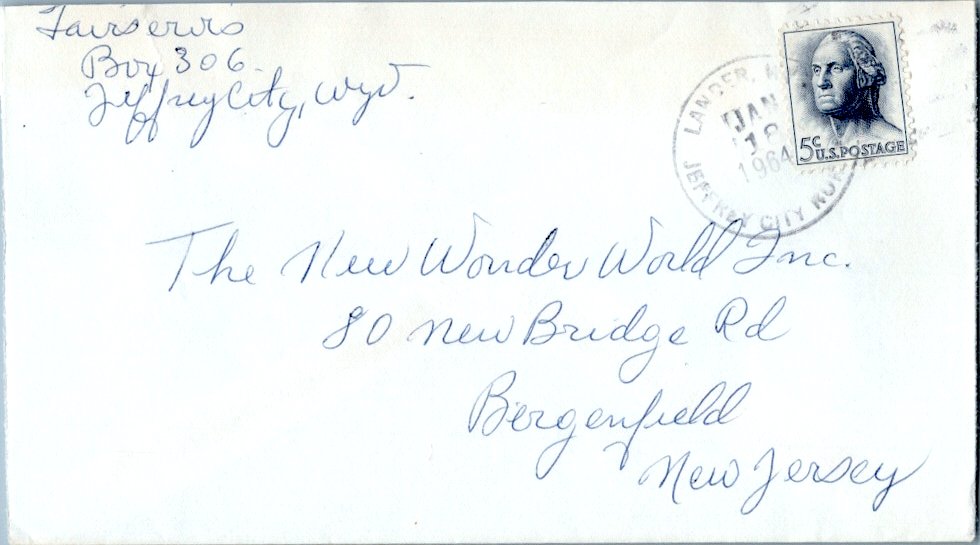 Fairservis
Box 306
Jeffrey City, Wyo.
LANDER, W
JAN
1964
JEFFREY CITY RUR
5c
U.S. POSTAGE
The New Wonder World Inc.
80 New Bridge Rd
Bergenfield
New Jersey